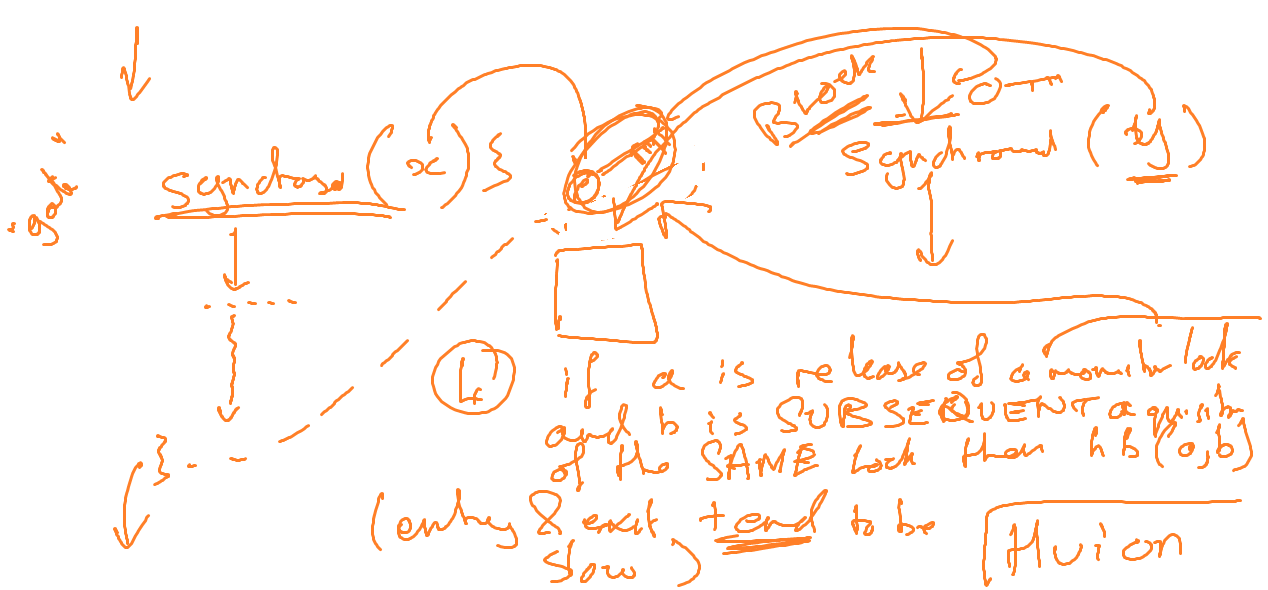 "gate"
synchose (x) {
Block
synchround (xy)
4 if a is release of a monitor lock
and b is SUBSEQUENT aquisitn
of the SAME lock then hb(a,b)
(entry & exit tend to be
slow)
Huion
}